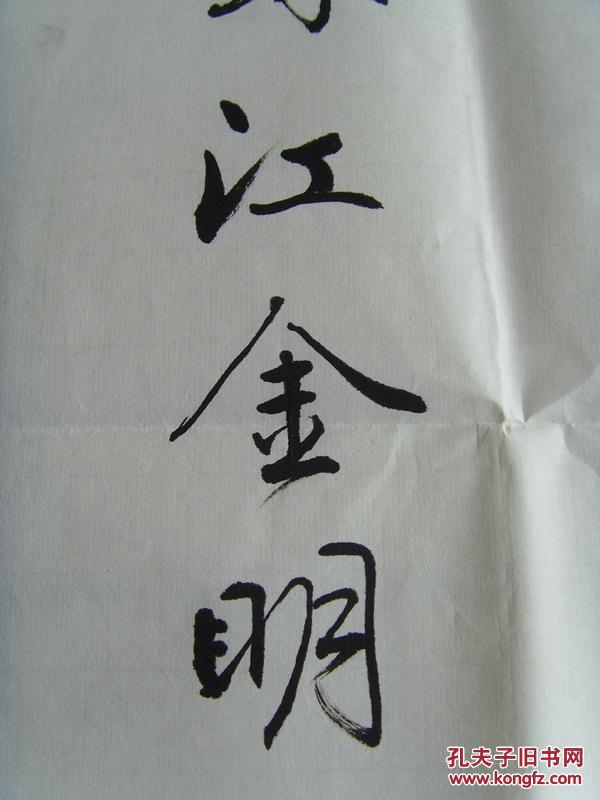 江金明
孔夫子旧书网
www.kongfz.com